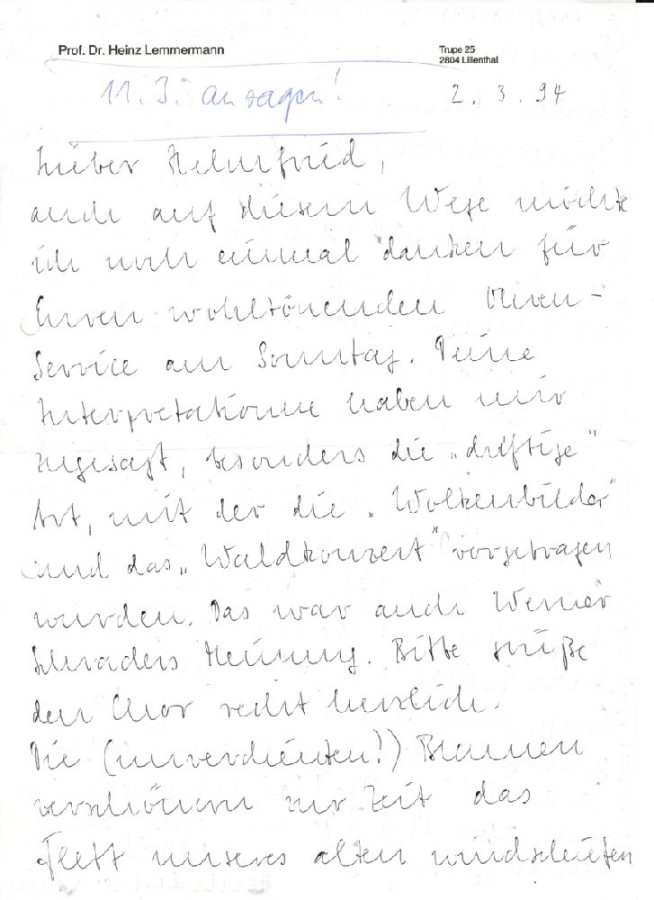 Prof. Dr. Heinz Lemmermann
Trupe 25
2804 Lilienthal
11. 3. ansagen!
2. 3. 94
Lieber Helmfried,
auch auf diesem Wege möchte
ich noch einmal danken für
Euren wohltönenden Ohren-
Service am Sonntag. Deine
Interpretationen haben mir
zugesagt, besonders die „duftige"
Art, mit der die „Wolkenbilder"
und das „Waldkonzert" vorgetragen
wurden. Das war auch Werner
Schraders Meinung. Bitte grüße
den Chor recht herzlich.
Die (unverdienten!) Blumen
verschönern zur Zeit das
Flett unseres alten windschiefen